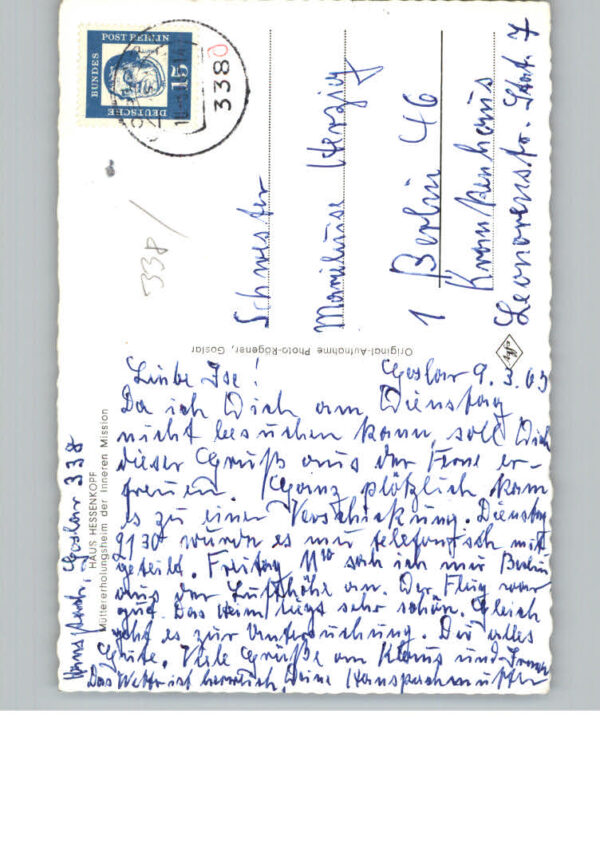 DEUTSCHE
BUNDES
POST BERLIN
15
3380
338/
Schwester
Marieluise Herzig
1 Berlin 46
Krankenhaus
Leonorenstr. Stat. 7
Original-Aufnahme Photo-Rögener, Goslar
HAUS HESSENKOPF
Müttererholungsheim der Inneren Mission
Goslar 338
Goslar 9.3.65
Liebe Ise!
Da ich Dich am Dienstag
nicht besuchen kann, soll Dich
dieser Gruß aus der Ferne er-
freuen. Ganz plötzlich kam
es zu einer Verschickung. Dienstag
9130 wurde es mir telefonisch mit
geteilt. Freitag 11 sah ich mir Berlin
aus der Lufthöhe an. Der Flug war
gut. Das Heim liegt sehr schön. Gleich
geht es zur Untersuchung. Dir alles
Gute. Viele Grüße an Klaus und
Das Wetter ist herrlich. Deine